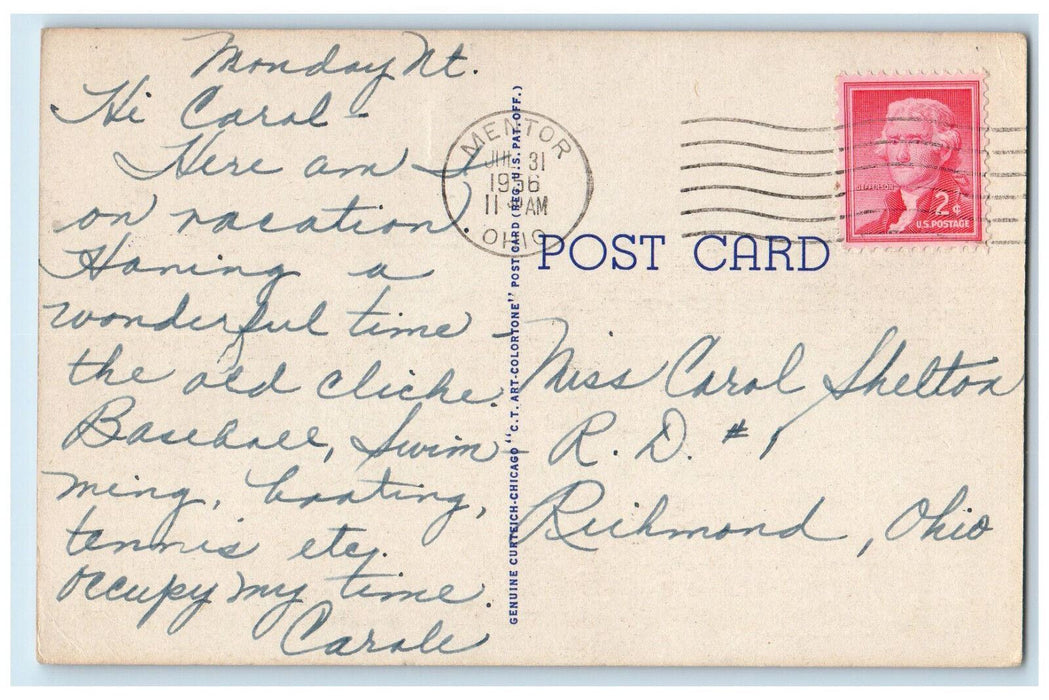 Monday Nt.
Hi Carol -
Here am I
on vacation.
Having a
wonderful time -
the old cliche.
Baseball, swim-
ming, boating,
tennis etc.
occupy my time.
Carole
GENUINE CURTEICH-CHICAGO "C.T. ART-COLORTONE" POST CARD (REG. U.S. PAT. OFF.)
MENTOR
JUL 31
1956
11 AM
OHIO
POST CARD
JEFFERSON
2¢
U.S. POSTAGE
Miss Carol Shelton
R. D. #1
Richmond, Ohio